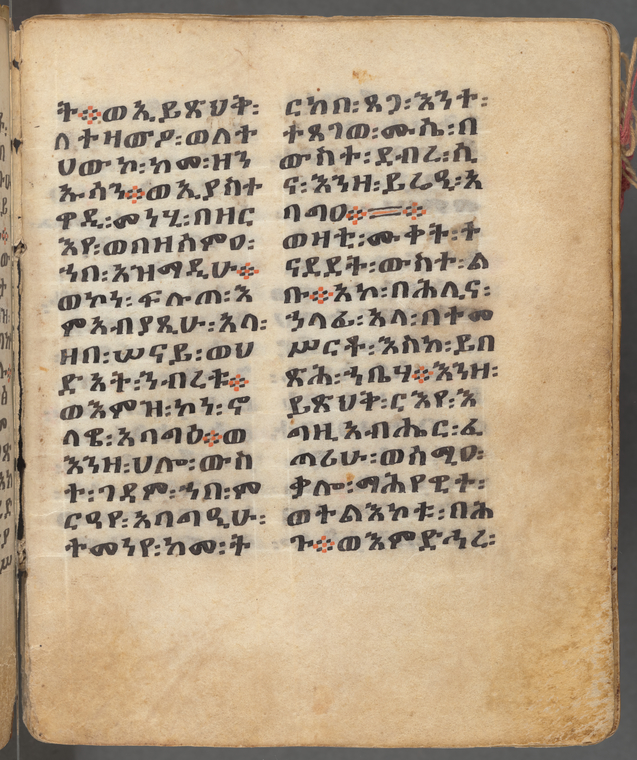 ት፨ወኢይጽህቅ፡
ለተዛውዖ፡ወለት
ህውኮ፡ከመ፡ዘን
ኡሳን፨ወኢያስት
ዋዲ፡መነሂ፡በዘር
እየ፡ወበዘሰምዐ፡
ኀበ፡አዝማዲሁ፨
ወኮነ፡ፍሉጠ፡እ
ምአብያጺሁ፡አባ፡
ዘበ፡ሠናይ፡ወህ
ድአት፡ንብረቱ፨
ወእምዝ፡ኮነ፡ኖ
ላዌ፡አባግዕ፨ወ
እንዘ፡ሀሎ፡ውስ
ተ፡ገዳም፡ኀበ፡ም
ርዓየ፡አባግዒሁ፡
ተመነየ፡ከመ፡ት
ርከበ፡ጸጋ፡እንተ፡
ተጸገወ፡ሙሴ፡በ
ውስተ፡ደብረ፡ሲ
ና፡እንዘ፡ይሬዒ፡አ
ባግዐ፨፨
ወዛቲ፡ሙቀት፡ት
ናደደት፡ውስተ፡ል
ቡ፨አኮ፡በሕሊና፡
ኃላፊ፡አላ፡በተመ
ሥርቶ፡እስከ፡ይበ
ጽሕ፡ኀቤሃ፨እንዘ፡
ይጽህቅ፡ርእየ፡እ
ግዚአብሔር፡ፈ
ጣሪሁ፡ወሰሚዐ፡
ቃሎ፡ማሕየዊተ፡
ወተልእኮቱ፡በሕ
ጉ፨ወእምድኅረ፡